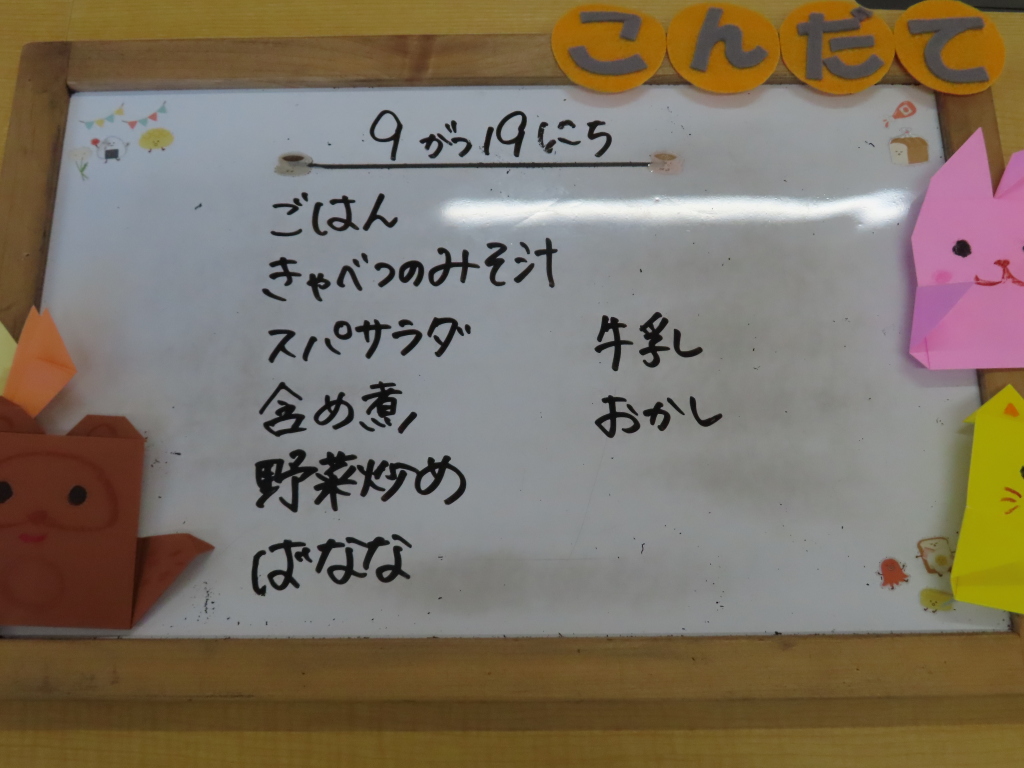 こんだて
9がつ19にち
ごはん
きゃべつのみそ汁
スパサラダ
含め煮
野菜炒め
ばなな
牛乳し
おかし